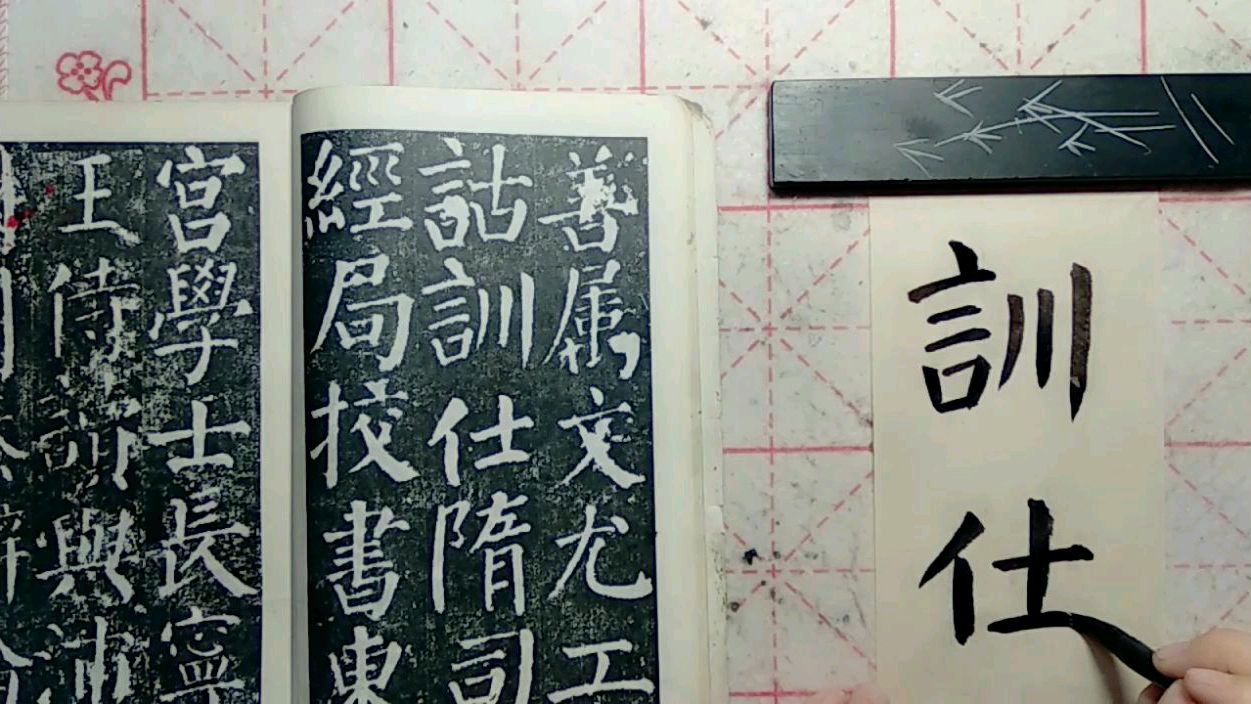 善属文尤工
詁訓仕隋司
經局挍書東
宮學士長寧
王侍讀與浦
訓仕